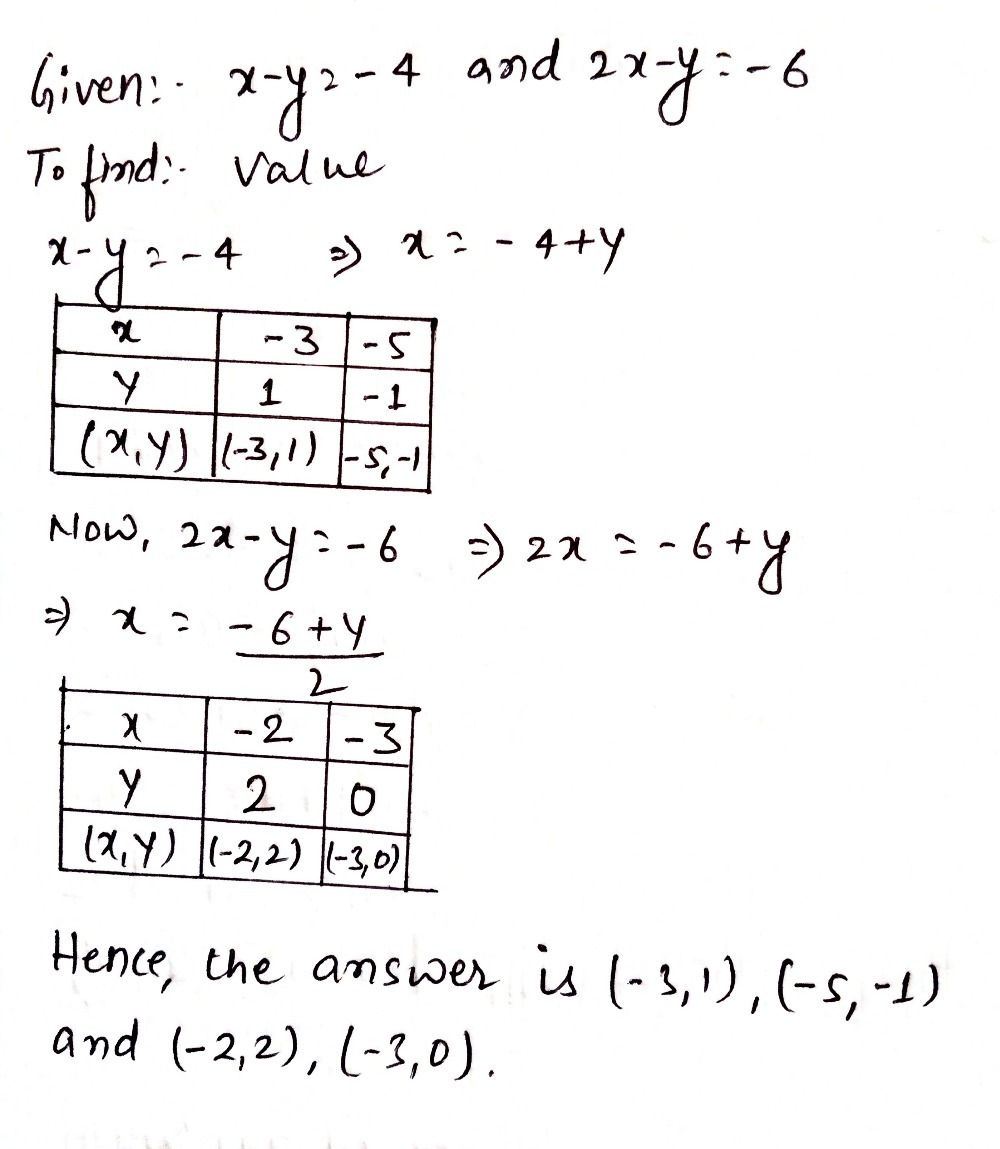 Given:- x-y=-4 and 2x-y=-6
To find:- value
x-y=-4 ⇒ x=-4+y
x -3 -5
y 1 -1
(x,y) (-3,1) -5,-1
Now, 2x-y=-6 ⇒ 2x=-6+y
⇒ x = -6+y
2
x -2 -3
y 2 0
(x,y) (-2,2) (-3,0)
Hence, the answer is (-3,1), (-5,-1)
and (-2,2), (-3,0).